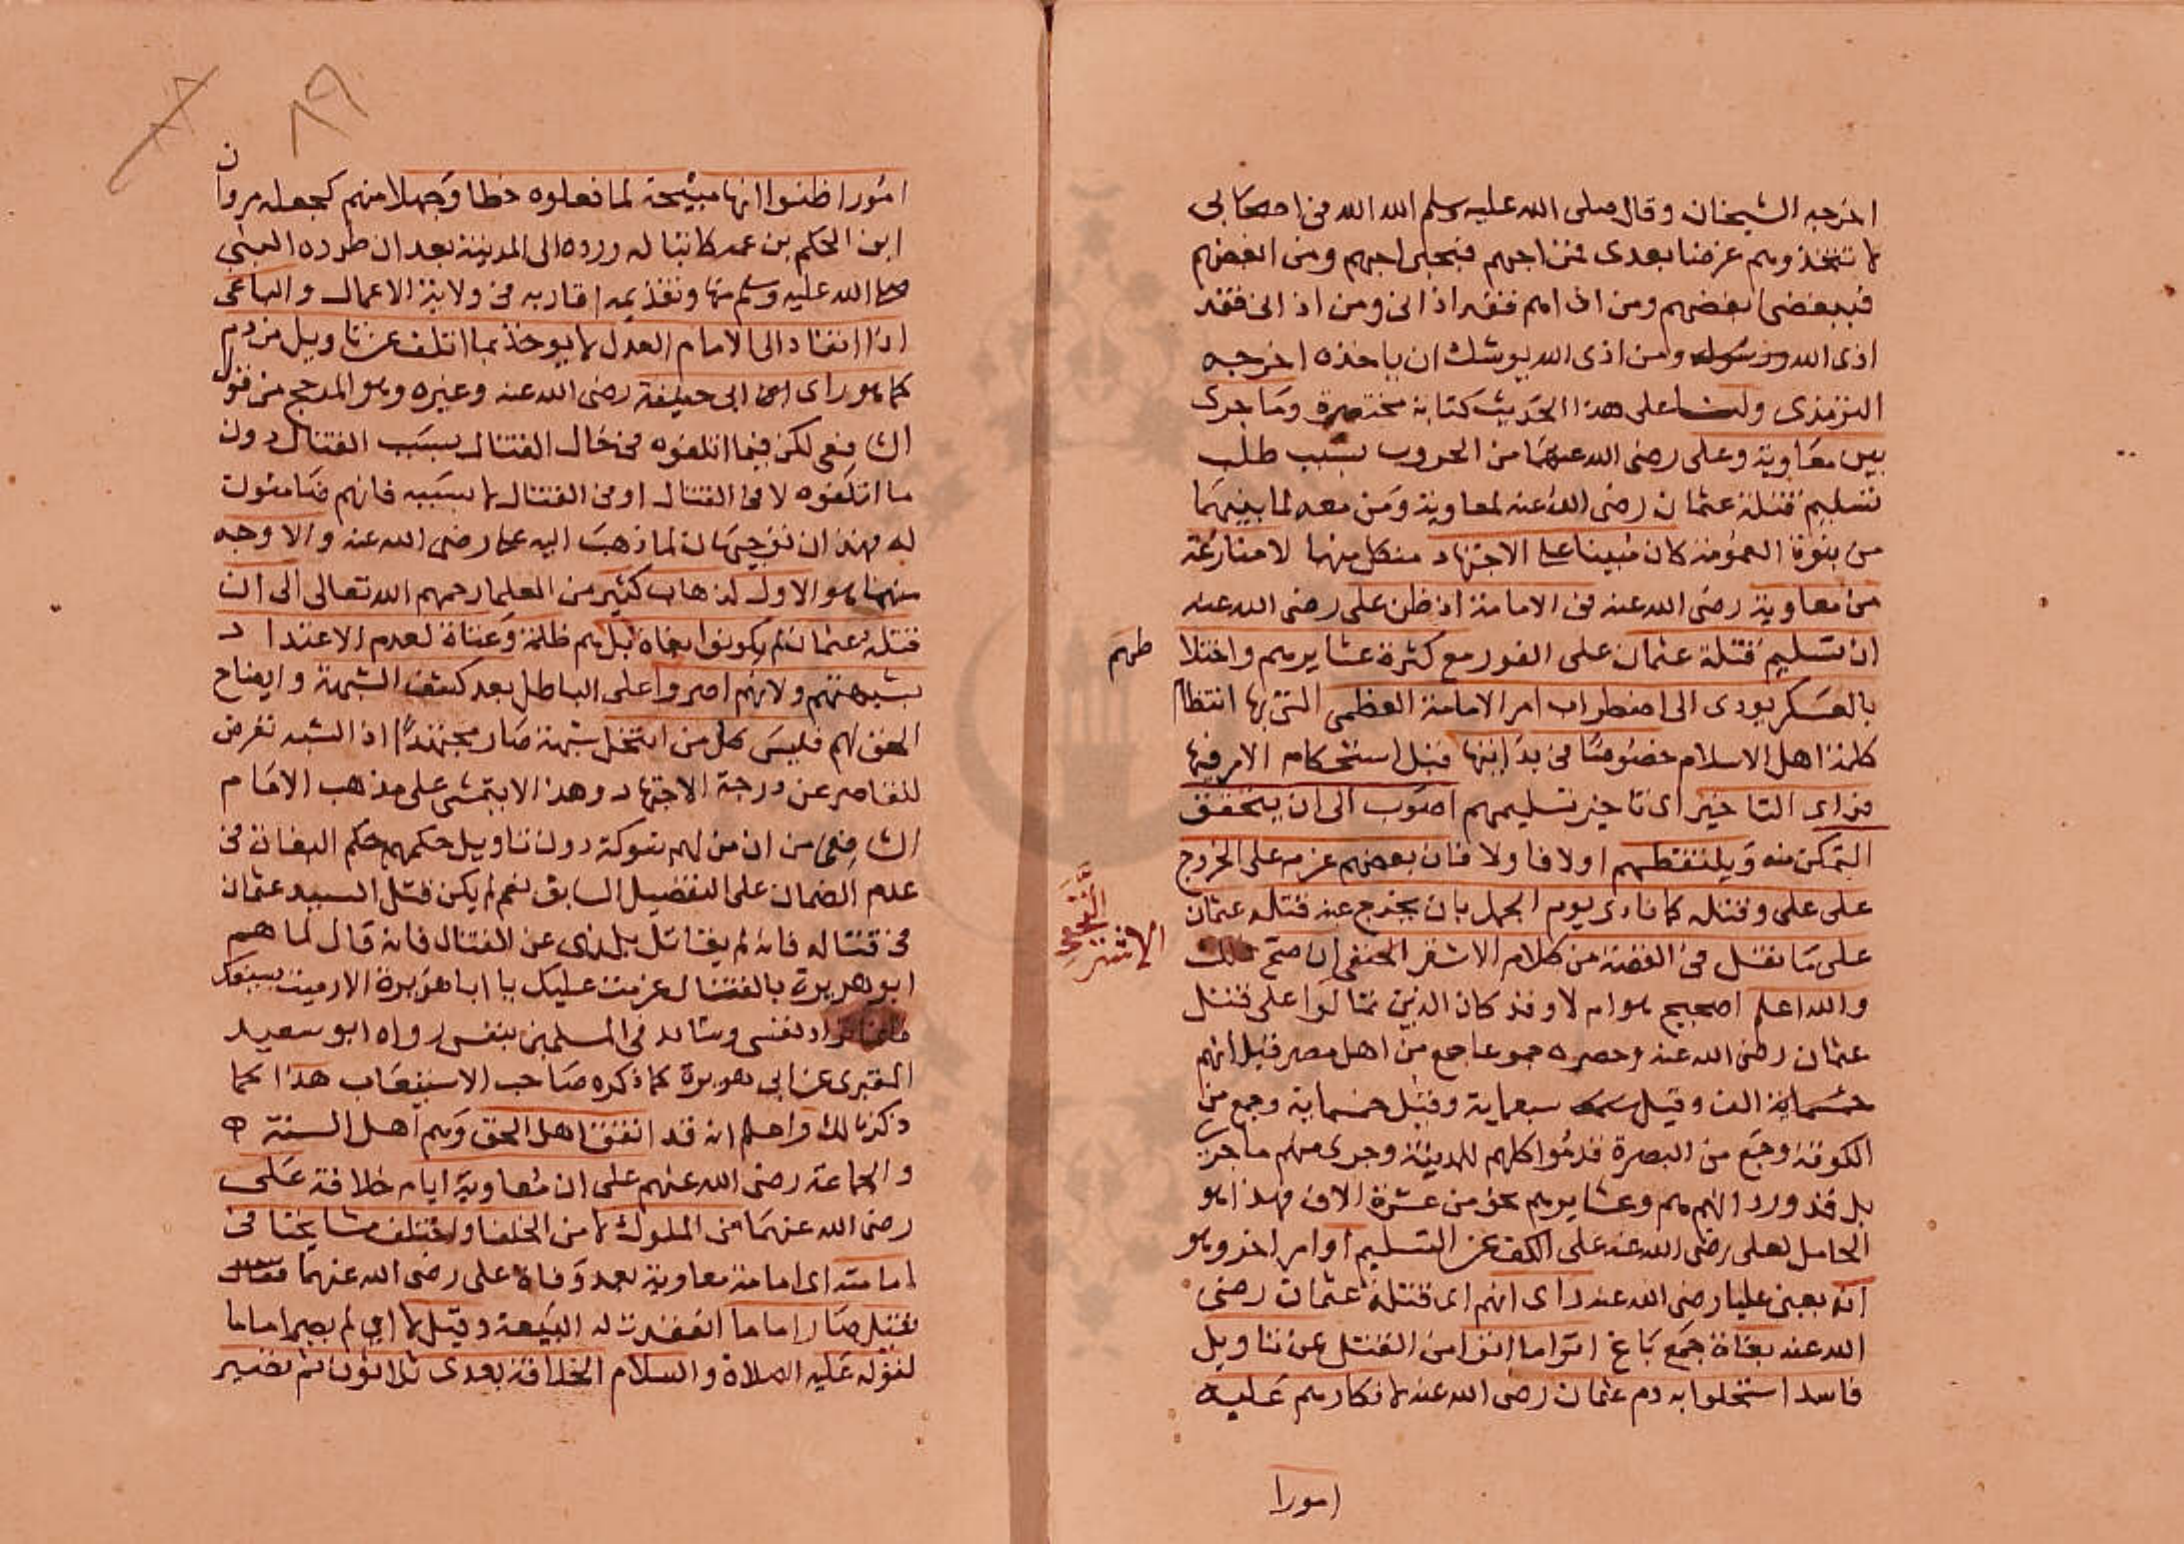 اخرجه الشيخان وقال صلى الله عليه وسلم الله الله في اصحابي
لا تتخذوهم غرضا بعدي فمن احبهم فبحبي احبهم ومن ابغضهم
فببغضي ابغضهم ومن اذاهم فقد اذاني ومن اذاني فقد
اذى الله ومن اذى الله يوشك ان ياخذه اخرجه
الترمذي ولنا على هذا الحديث كتابة مختصرة وما جرى
بين معاوية وعلي رضي الله عنهما من الحروب بسبب طلب
تسليم قتلة عثمان رضي الله عنه لمعاوية ومن معه لما بينهما
من بنوة العمومة كان مبينا على الاجتهاد من كل منهما لا منازعة
من معاوية رضي الله عنه في الامامة اذ ظن علي رضي الله عنه
ان تسليم قتلة عثمان على الفور مع كثرة عشايرهم واختلا
طهم
بالعسكر يودي الى اضطراب امر الامامة العظمى التي بها انتظام
كلمة اهل الاسلام خصوصا في بدايتها قبل استحكام الامر فيها
فراى التاخير اي تاخير تسليمهم اصوب الى ان يتحقق
التمكن منه ويلتقطهم اولا فاولا فان بعضهم عزم على الخروج
على علي وقتله كما نادى يوم الجمل بان يخرج عنه قتلة عثمان
على ما نقل في القصة من كلام الاشتر النخعي ان صح ذلك
الاشتر
النخعي
والله اعلم اصحيح هو ام لا وقد كان الذين تمالوا على قتل
عثمان رضي الله عنه وحصره جموعا جمع من اهل مصر قيل انهم
الف وقيل سبعماية وقيل خمسماية وجمع من
الكوفة وجمع من البصرة قدموا كلهم المدينة وجرى منهم ما جرى
بل قد ورد انهم هم وعشايرهم نحو من عشرة الاف فهذا هو
الحامل لعلي رضي الله عنه على الكف عن التسليم او امر اخر وهو
انه يعني عليا رضي الله عنه راى انهم اي قتلة عثمان رضي
الله عنه بغاة جمع باغ اتوا ما اتوا من القتل عن تاويل
فاسد استحلوا به دم عثمان رضي الله عنه لانكارهم عليه
امورا
٨٩
امورا ظنوا انها مبيحة لما فعلوه خطا وجهلا منهم كجعله مروان
ابن الحكم بن عمه كاتبا له ورده الى المدينة بعد ان طرده النبي
صلى الله عليه وسلم منها وتقديمه اقاربه في ولاية الاعمال والباغي
اذا انقاد الى الامام العدل لا يوخذ بما اتلف عن تاويل من دم
كما هو راى ابي حنيفة رضي الله عنه وغيره وهو المرجح من قول
الشافعي لكن فيما اتلفوه في حال القتال بسبب القتال دون
ما اتلفوه لا في القتال او في القتال لا بسببه فانهم ضامنون
له فهذان توجيهان لما ذهب اليه علي رضي الله عنه والاوجه
منهما هو الاول لذهاب كثير من العلما رحمهم الله تعالى الى ان
قتلة عثمان لم يكونوا بغاة بل هم ظلمة وعتاة لعدم الاعتداد
بشبهتهم ولانهم اصروا على الباطل بعد كشف الشبهة وايضاح
الحق لهم فليس كل من انتحل شبهة صار مجتهدا اذ الشبه تعرض
للقاصر عن درجة الاجتهاد وهذا لا يتمشى على مذهب الامام
الشافعي من ان من لهم شوكة دون تاويل حكمهم حكم البغاة في
عدم الضمان على التفصيل السابق نعم لم يكن قتل السيد عثمان
في قتاله فانه لم يقاتل بل نهى عن القتال فانه قال لما هم
ابو هريرة بالقتال عزمت عليك يا ابا هريرة الا رميت بسيفك
فانما تراد نفسي وساقي المسلمين بنفسي رواه ابو سعيد
المقبري عن ابي هريرة كما ذكره صاحب الاستيعاب هذا كما
ذكرنا لك واعلم انه قد اتفق اهل الحق وهم اهل السنة
والجماعة رضي الله عنهم على ان معاوية ايام خلافة علي
رضي الله عنهما من الملوك لا من الخلفا واختلف مشايخنا في
امامته اي امامة معاوية بعد وفاة علي رضي الله عنهما
فقيل صار اماما انعقدت له البيعة وقيل لا اي لم يصر اماما
لقوله عليه الصلاة والسلام الخلافة بعدي ثلاثون ثم تصير